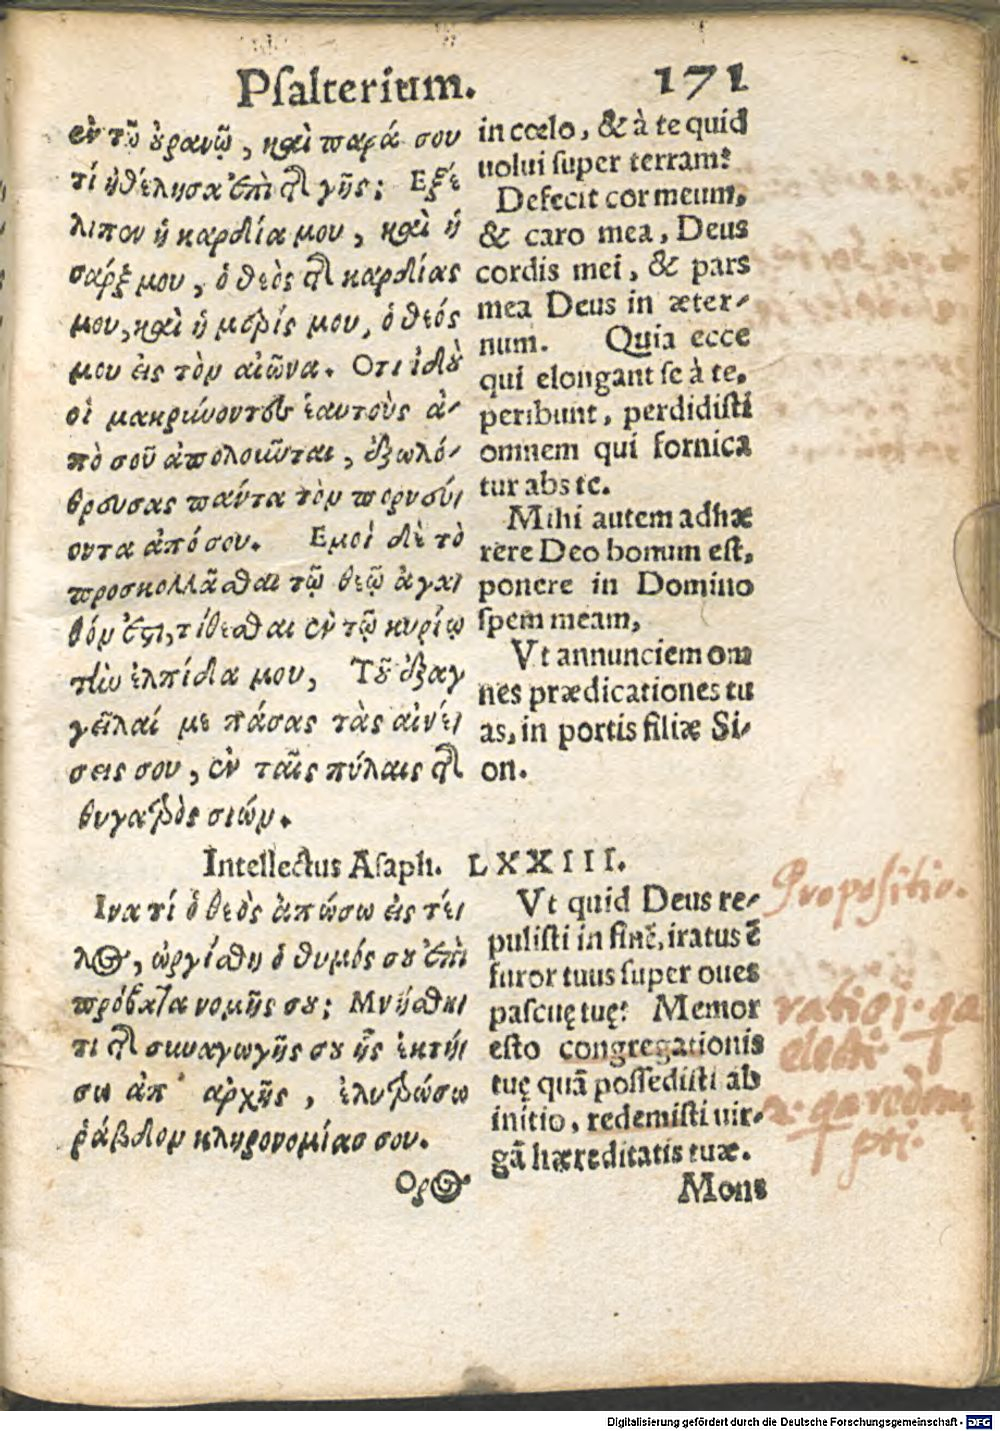 Pſalterium. 171
ἐν τῷ ὀρανῷ, καὶ παρά σου
τί ἠθέλησα ἐπὶ τῆς γῆς; Εξέ
λιπον ἡ καρδία μου, καὶ ἡ
σάρξ μου, ὁ θεὸς τῆς καρδίας
μου, καὶ ἡ μερίς μου, ὁ θεός
μου εἰς τὸν αἰῶνα. Οτι ἰδοὺ
οἱ μακρύνοντες ἑαυτοὺς ἀ-
πὸ σοῦ ἀπολοῦνται, ἐξωλό-
θρευσας πάντα τὸν πορνεύ-
οντα ἀπό σου. Εμοὶ δὲ τὸ
προσκολλᾶσθαι τῷ θεῷ ἀγα-
θόν ἐστι, τίθεσθαι ἐν τῷ κυρίῳ
τὴν ἐλπίδα μου, Τοῦ ἐξαγ
γεῖλαί με πάσας τὰς αἰνέ-
σεις σου, ἐν ταῖς πύλαις τῆς
θυγατρὸς σιών.
in cœlo, & à te quid
uolui ſuper terram?
Defecit cor meum,
& caro mea, Deus
cordis mei, & pars
mea Deus in æter-
num. Quia ecce
qui elongant ſe à te,
peribunt, perdidiſti
omnem qui fornica
tur abs te.
Mihi autem adhæ
rere Deo bonum eſt,
ponere in Domino
ſpem meam,
Vt annunciem om
nes prædicationes tu
as, in portis filiæ Si-
on.
Intellectus Aſaph. LXXIII.
Ινα τί ὁ θεὸς ἀπώσω εἰς τέ-
λος, ὠργίσθη ὁ θυμός σου ἐπὶ
πρόβατα νομῆς σου; Μνήσθη-
τι τῆς συναγωγῆς σου ἧς ἐκτή-
σω ἀπ' ἀρχῆς, ἐλυτρώσω
ῥάβδον κληρονομίας σου.
Ορος
Vt quid Deus re-
puliſti in finē, iratus ē
furor tuus ſuper oues
paſcuę tuę? Memor
eſto congregationis
tuę quā poſſediſti ab
initio, redemiſti uir-
gā hæreditatis tuæ.
Mons
Propoſitio.
electi
Digitalisierung gefördert durch die Deutsche Forschungsgemeinschaft - DFG